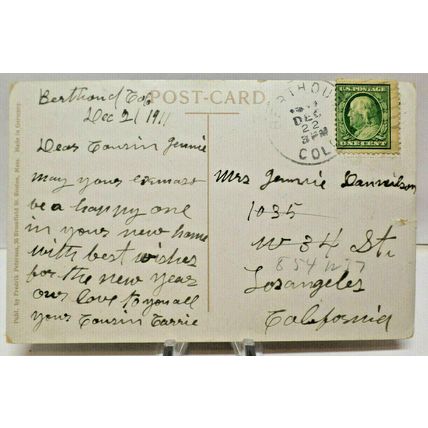 Berthoud Col
Dec 21 1911
POST-CARD.
Dear Cousin Jennie
may your exmass
be a happy one
in your new home
with best wishes
for the new year
our love to you all
your Cousin Carrie
BERTHOUD
DEC
22
3 PM
COLO
U.S. POSTAGE
ONE CENT
Mrs Jennie Dannilson
1035
W 34 St.
854 W 37
Losangeles
California
Publ. by Fredk. Peterson, 36 Bromfield St. Boston, Mass. Made in Germany.